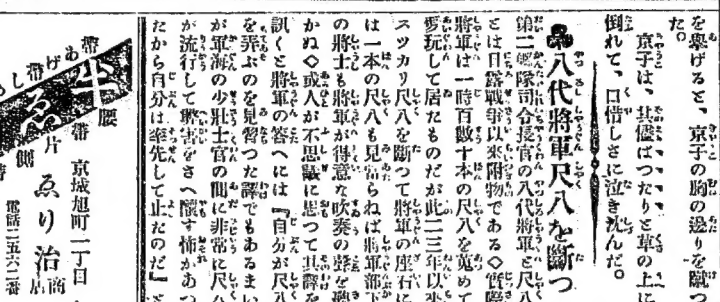 を擧げると、京子の胸の邊りを蹴つ
た。
京子は、其儘ばつたりと草の上に
倒れて、口惜しさに泣き沈んだ。
八代將軍尺八を斷つ
第二艦隊司令長官の八代將軍と尺八
とは日露戰爭以來附物である◇實際
將軍は一時百數十本の尺八を蒐めて
愛玩して居たものだが此二三年以來
スツカリ尺八を斷つて將軍の座右に
は一本の尺八も見當らねば將軍部下
の將士も將軍が得意な吹奏の聲を聽
かぬ◇或人が不思議に思つて其譯を
訊くと將軍の答へには『自分が尺八
を弄ぶのを見習つた譯でもあるまい
が軍海の少壯士官の間に非常に尺八
が流行して弊害をさへ釀す怖があつ
たから自分は率先して止たのだ』と
帶
あげ
帶
しめ
半
ゑり
腰
帶
片
側
京城旭町二丁目
ゑり治商店
電話二五六二番